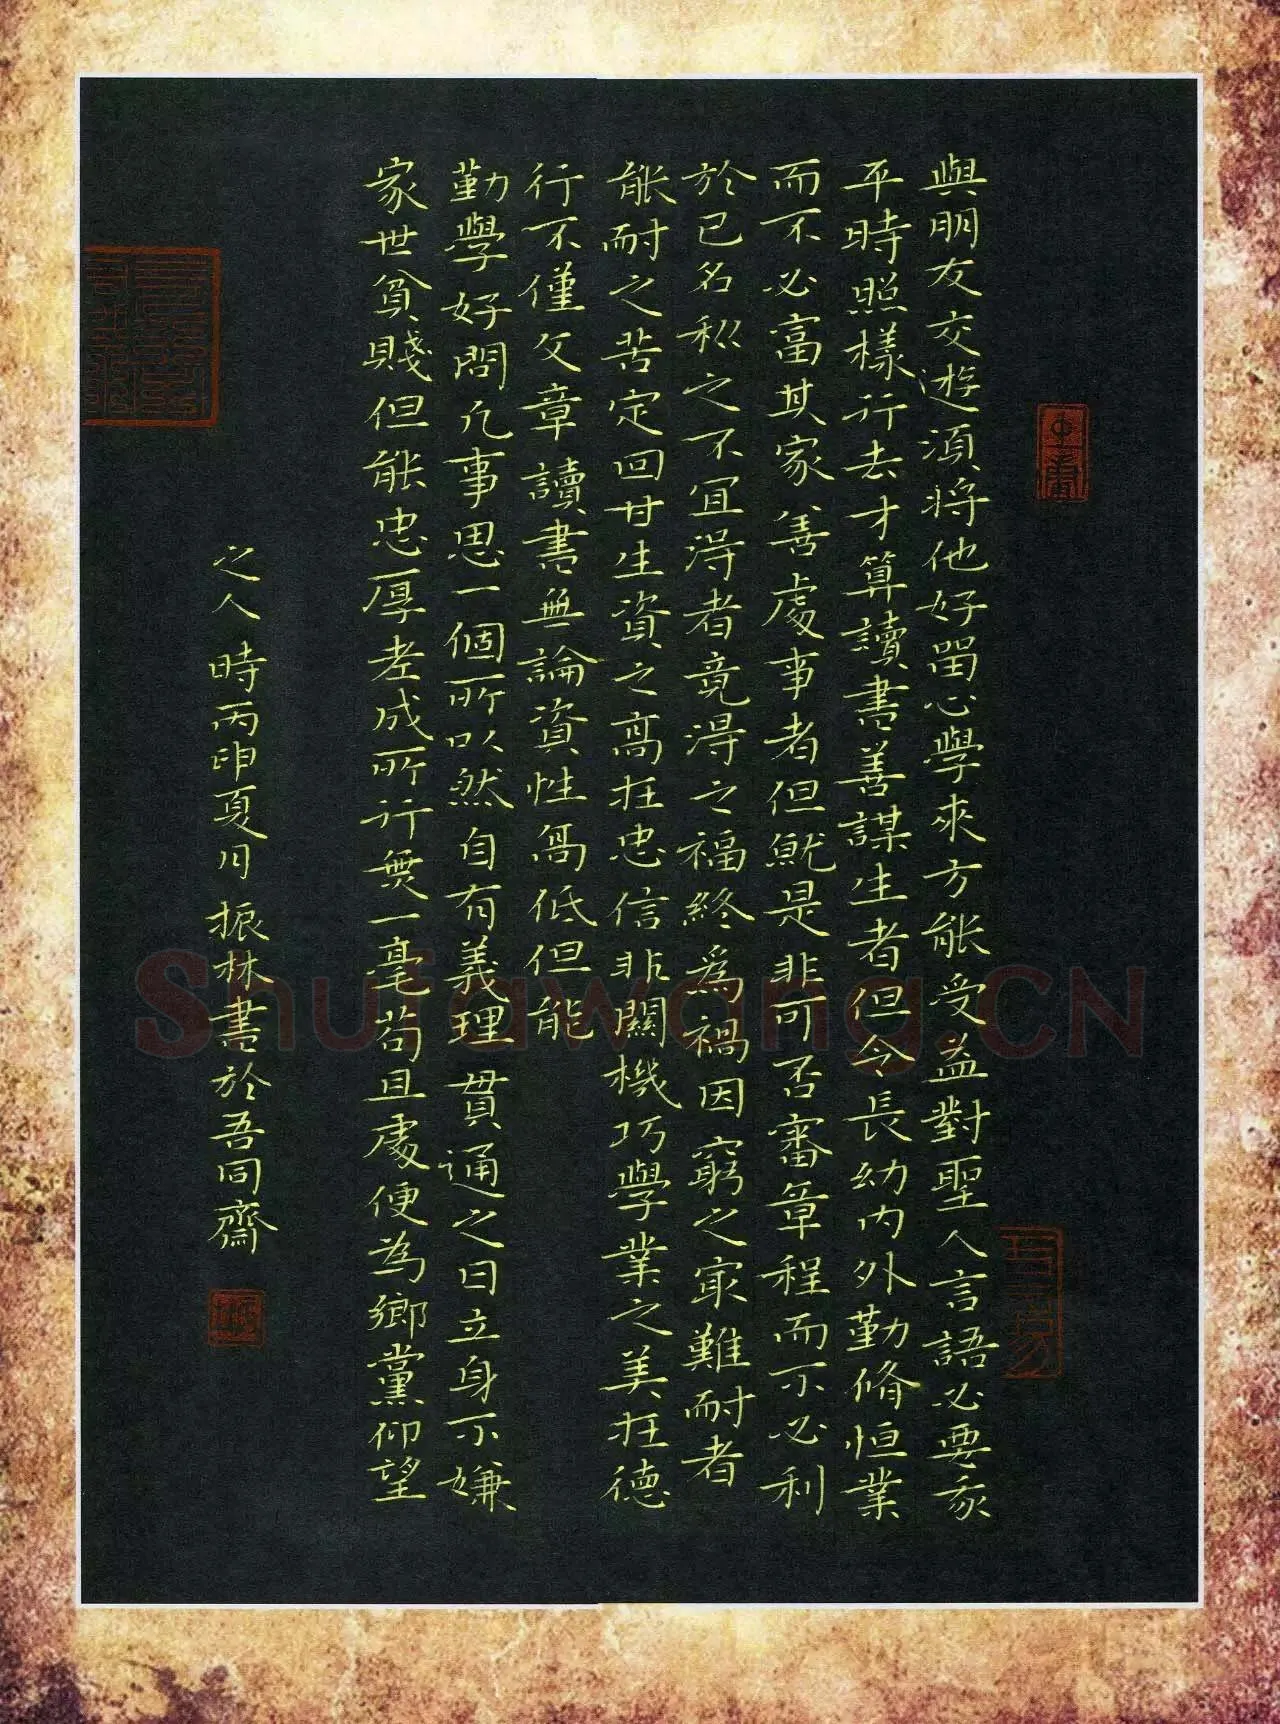 與朋友交遊須將他好留心學來方能受益對聖人言語必要我
平時照樣行去才算讀書善謀生者但令長幼內外勤脩恒業
而不必富其家善處事者但就是非可否審章程而不必利
於己名利之不宜得者竟得之福終為禍因窮之最難耐者
能耐之苦定回甘生資之高在忠信非關機巧學業之美在德
行不僅文章讀書無論資性高低但能
勤學好問凡事思一個所以然自有義理貫通之日立身不嫌
家世貧賤但能忠厚老成所行無一毫苟且處便為鄉黨仰望
之人時丙申夏月振林書於吾同齋
Shufawang.CN